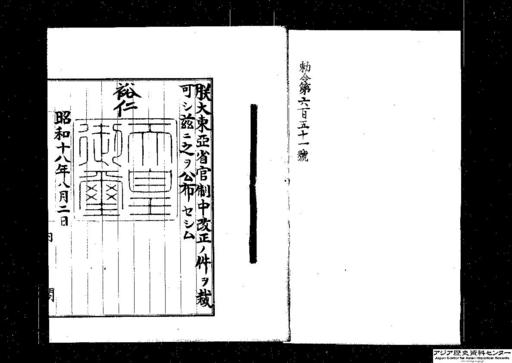 勅令第六百五十一號
朕大東亞省官制中改正ノ件ヲ裁
可シ茲ニ之ヲ公布セシム
裕仁
天皇
御璽
昭和十八年八月二日
内閣
アジア歴史資料センター
Japan Center for Asian Historical Records